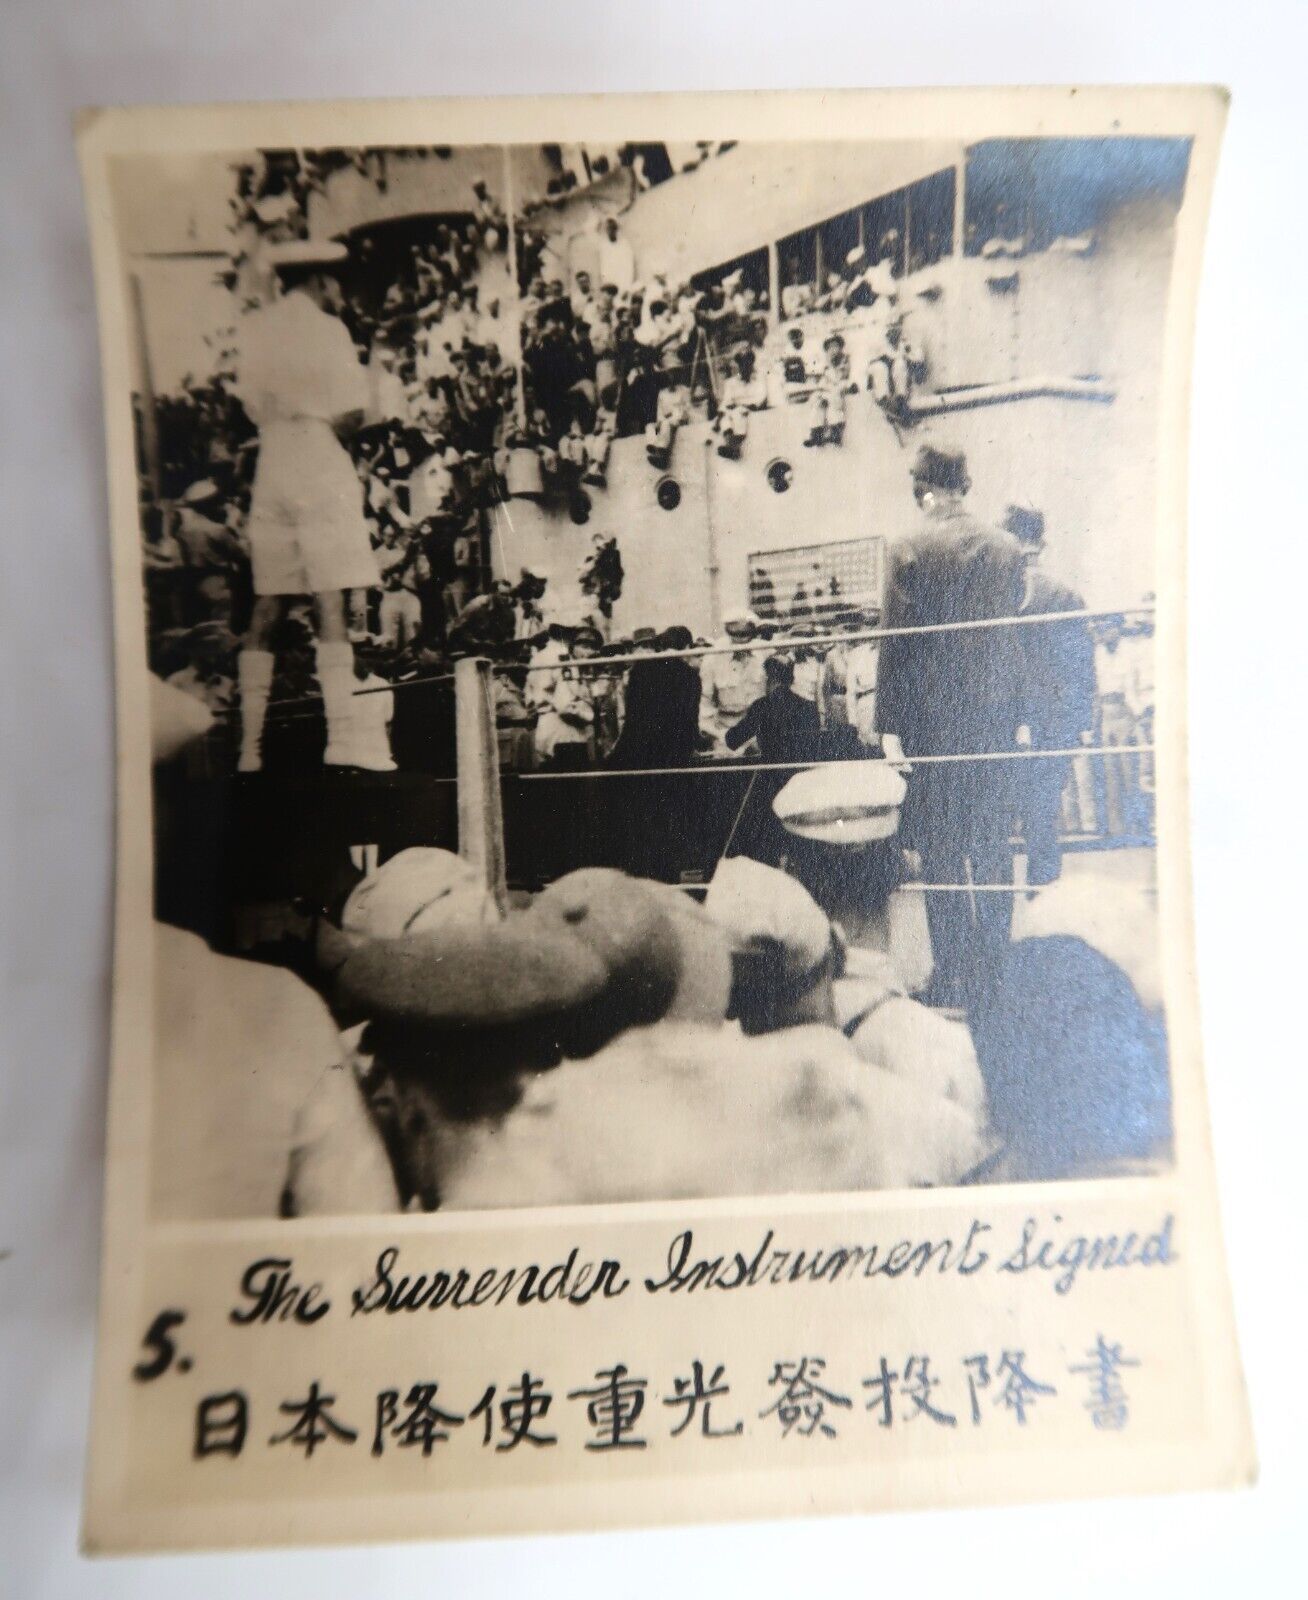 The Surrender Instrument Signed
5.
日本降使重光簽投降書